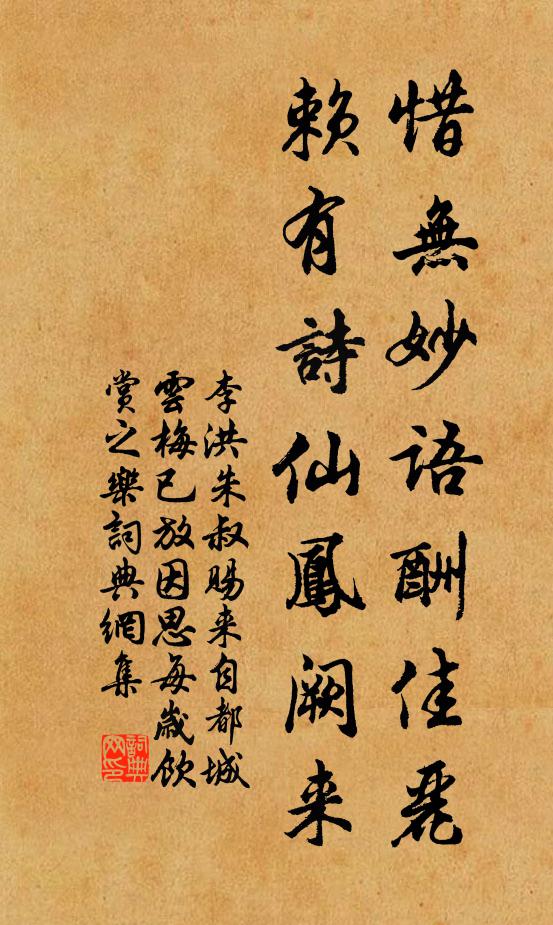 惜無妙語酬佳麗
賴有詩仙鳳闕来
李洪朱叔賜来自都城
雲梅已放因思每歲飲
賞之樂詞典網集
詞典
网印